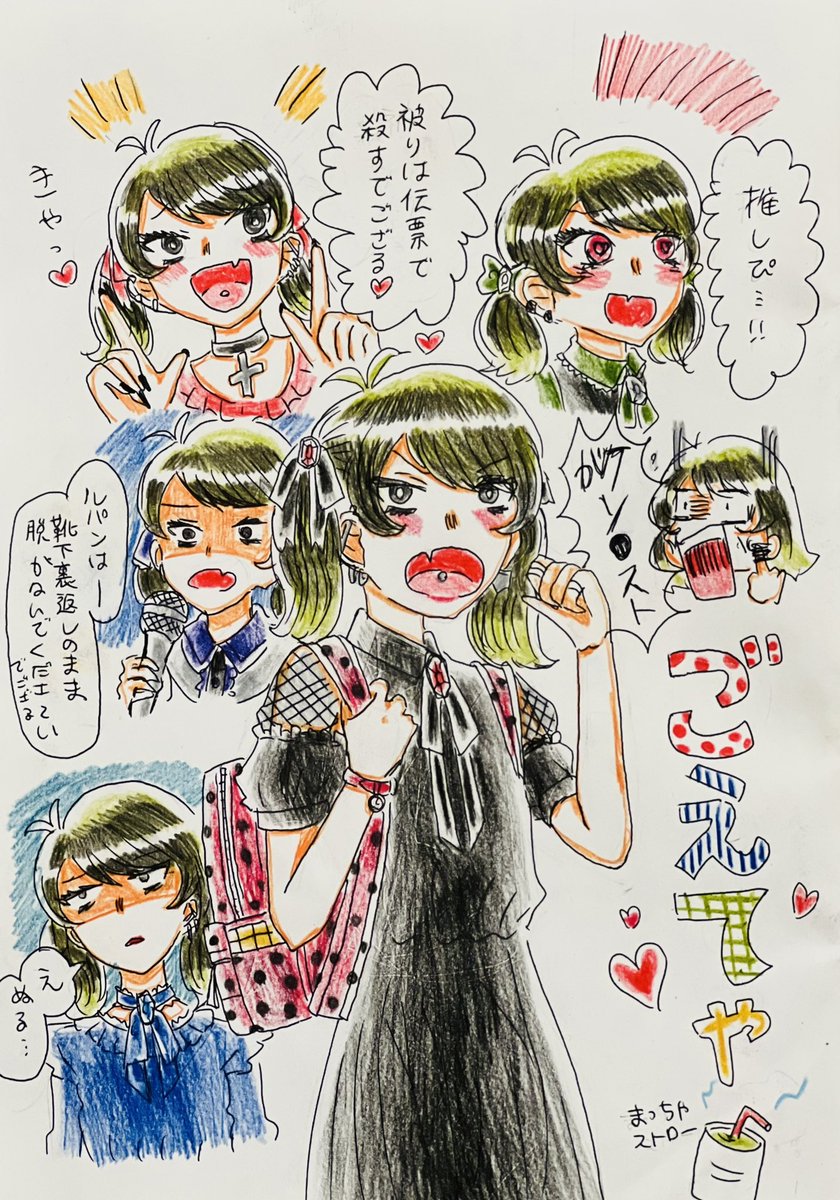 被りは伝票で
殺すでござる
きゃっ
推しぴ…!!
ガケン
スト
ルパンはー
靴下裏返しのまま
脱がないでください
でござる
ごえてや
え
ぬる…
まっちゃ
ストロー